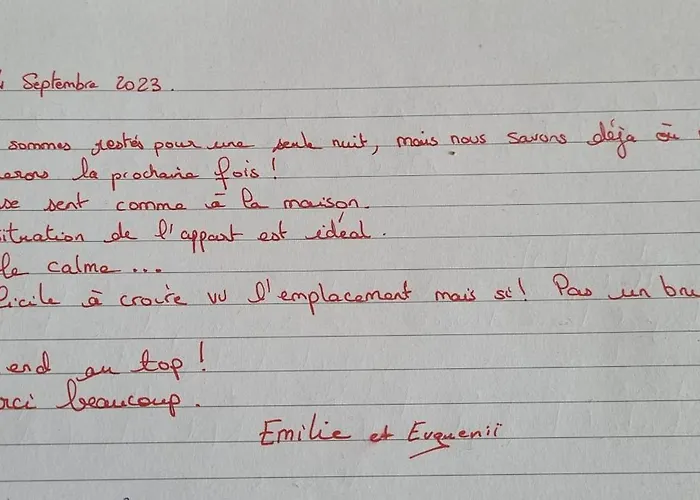 Septembre 2023.
sommes restés pour une seule nuit, mais nous savons déja où
erons la prochaine fois!
se sent comme à la maison.
ituation de l'appart est idéal.
le calme...
ficile à croire vu l'emplacement mais si! Pas un bru
end au top!
rci beaucoup.
Emilie et Evguenii